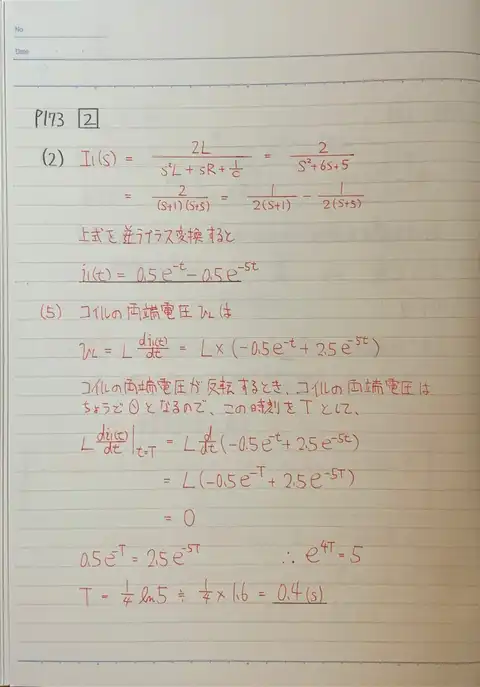 No.
Date
P173 2
(2) I₁(s) = 2L / (s²L + sR + 1/C) = 2 / (s²+6s+5)
= 2 / ((s+1)(s+5)) = 1 / (2(s+1)) - 1 / (2(s+5))
上式を逆ラプラス変換すると
i₁(t) = 0.5e^{-t} - 0.5e^{-5t}
(5) コイルの両端電圧 v_L は
v_L = L di₁(t)/dt = L × (-0.5e^{-t} + 2.5e^{-5t})
コイルの両端電圧が反転するとき、コイルの両端電圧は
ちょうど 0 となるので、この時刻をTとして、
L di₁(t)/dt |_{t=T} = L d/dt (-0.5e^{-t} + 2.5e^{-5t})
= L(-0.5e^{-T} + 2.5e^{-5T})
= 0
0.5e^{-T} = 2.5e^{-5T} ∴ e^{4T} = 5
T = 1/4 ln5 ≒ 1/4 × 1.6 = 0.4 (s)